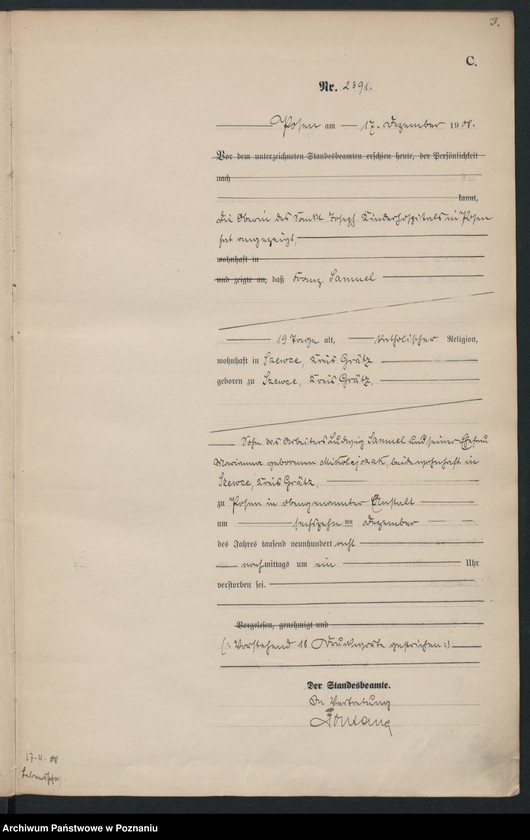 3.
C.
Nr. 2391.
Posen am 17. Dezember 1908.
Vor dem unterzeichneten Standesbeamten erschien heute, der Persönlichkeit
nach
kannt,
Die Oberin des Sankt Joseph Kinderhospitals in Posen
hat angezeigt,
wohnhaft in
und zeigte an, daß Franz Samuel
19 Tage alt, katholischer Religion,
wohnhaft in Szewce, Kreis Grätz
geboren zu Szewce, Kreis Grätz,
Sohn des Arbeiters Ludwig Samuel und seiner Ehefrau
Marianna geborenen Mikolejczak, beide wohnhaft in
Szewce, Kreis Grätz,
zu Posen in obengenannter Anstalt
am sechszehn ten Dezember
des Jahres tausend neunhundert acht
nachmittags um ein Uhr
verstorben sei.
Vorgelesen, genehmigt und
(: Vorstehend 18 Druckworte gestrichen :)
Der Standesbeamte.
In Vertretung
Archiwum Państwowe w Poznaniu